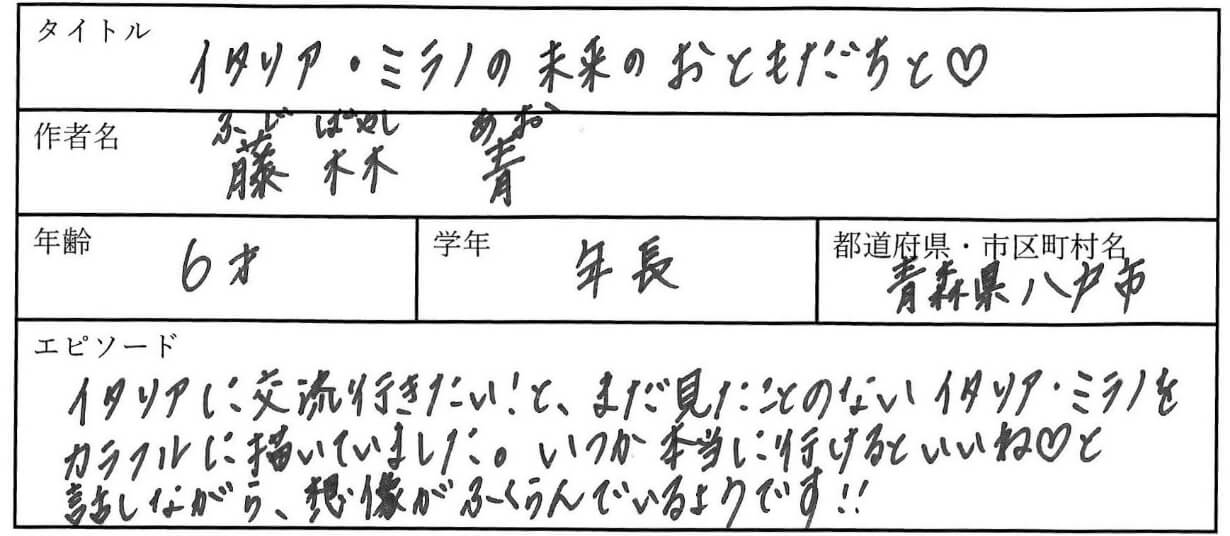 タイトル
イタリア・ミラノの未来のおともだちと♡
作者名
ふじ ばやし あお
藤林 青
年齢
6才
学年
年長
都道府県・市区町村名
青森県八戸市
エピソード
イタリアに交流行きたい!と、まだ見たことのないイタリア・ミラノを
カラフルに描いていました。いつか本当に行けるといいね♡と
話しながら、想像がふくらんでいるようです!!